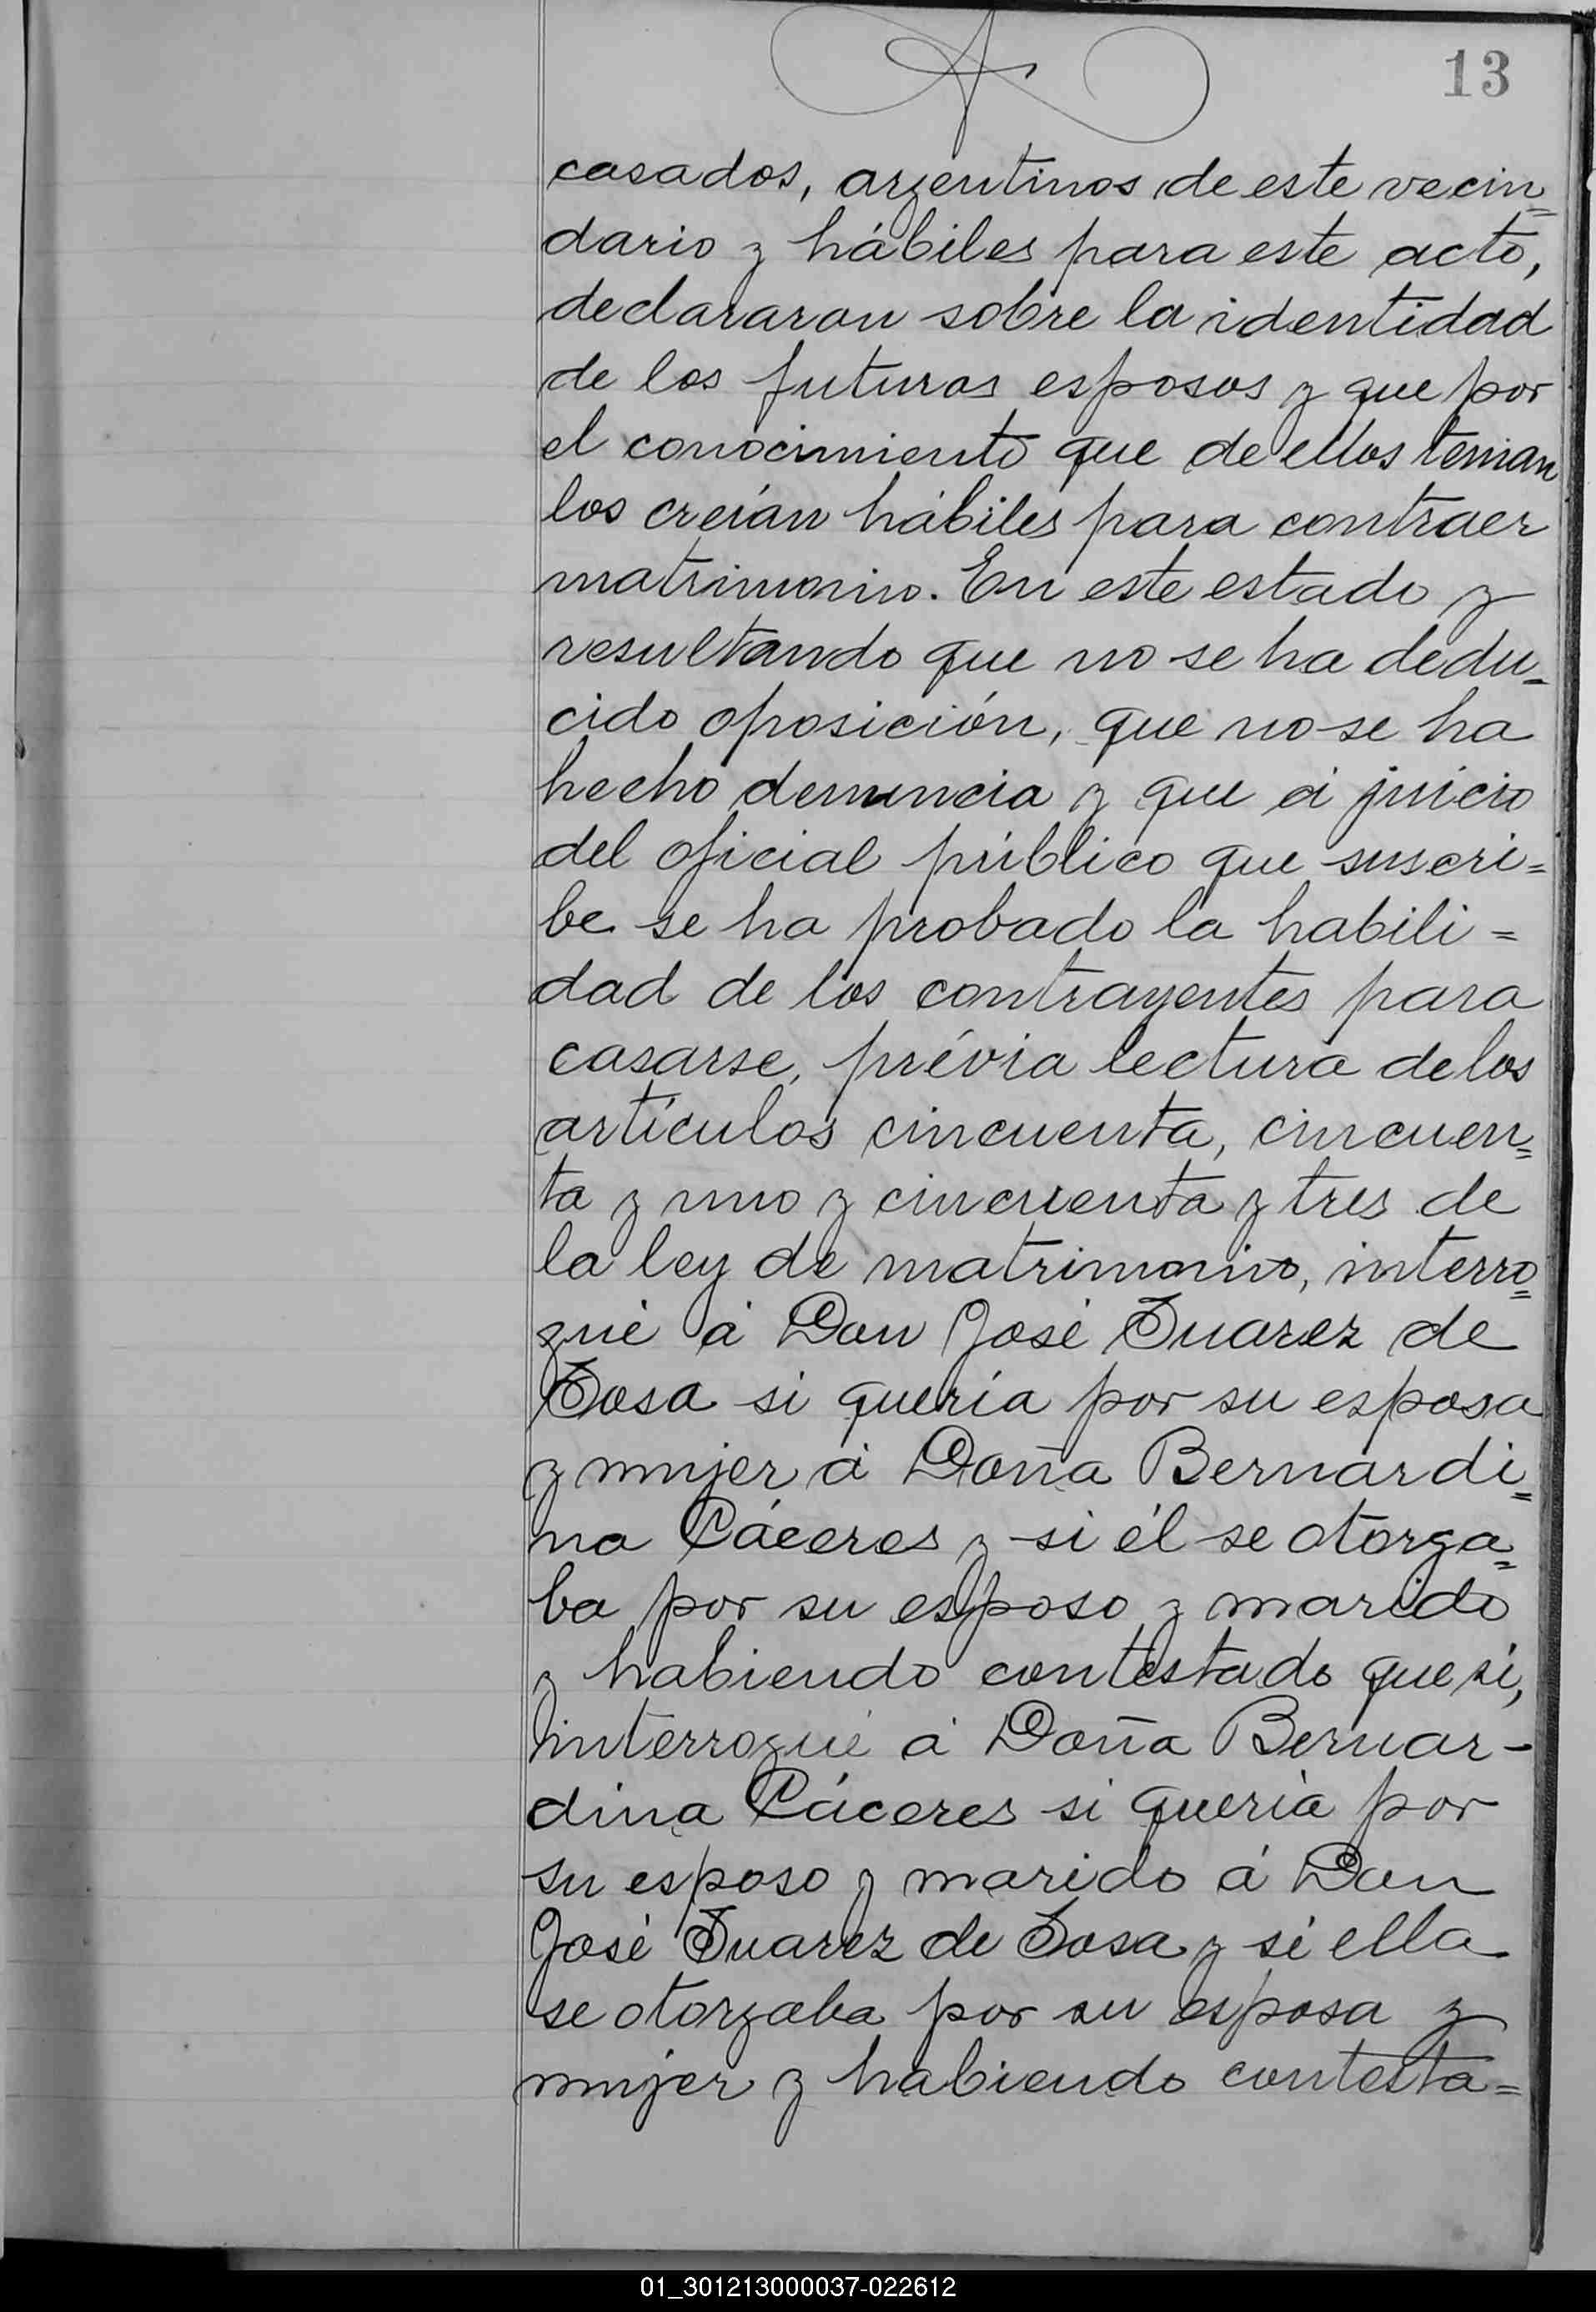 13
casados, argentinos de este vecin=
dario y hábiles para este acto,
declararon sobre la identidad
de los futuros esposos y que por
el conocimiento que de ellos tenian
los creían hábiles para contraer
matrimonio. En este estado y
resultando que no se ha dedu=
cido oposición, que no se ha
hecho denuncia y que á juicio
del oficial público que suscri=
be se ha probado la habili=
dad de los contrayentes para
casarse, prévia lectura de los
artículos cincuenta, cincuen=
ta y uno y cincuenta y tres de
la ley de matrimonio, interro=
gué á Don José Suarez de
Sosa si quería por su esposa
y mujer á Doña Bernardi=
na Cáceres y si él se otorga=
ba por su esposo y marido
y habiendo contestado que sí,
interrogué á Doña Bernar-
dina Cáceres si quería por
su esposo y marido á Don
José Suarez de Sosa y si ella
se otorgaba por su esposa y
mujer y habiendo contesta=
01_301213000037-022612